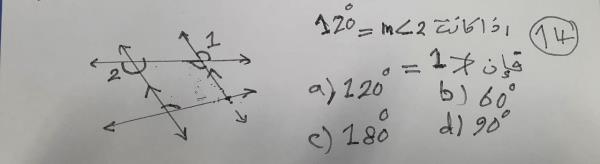 14 اذا كانت m<2 = 120°
فإن ∡1 =
a) 120° b) 60°
c) 180° d) 90°
1
2